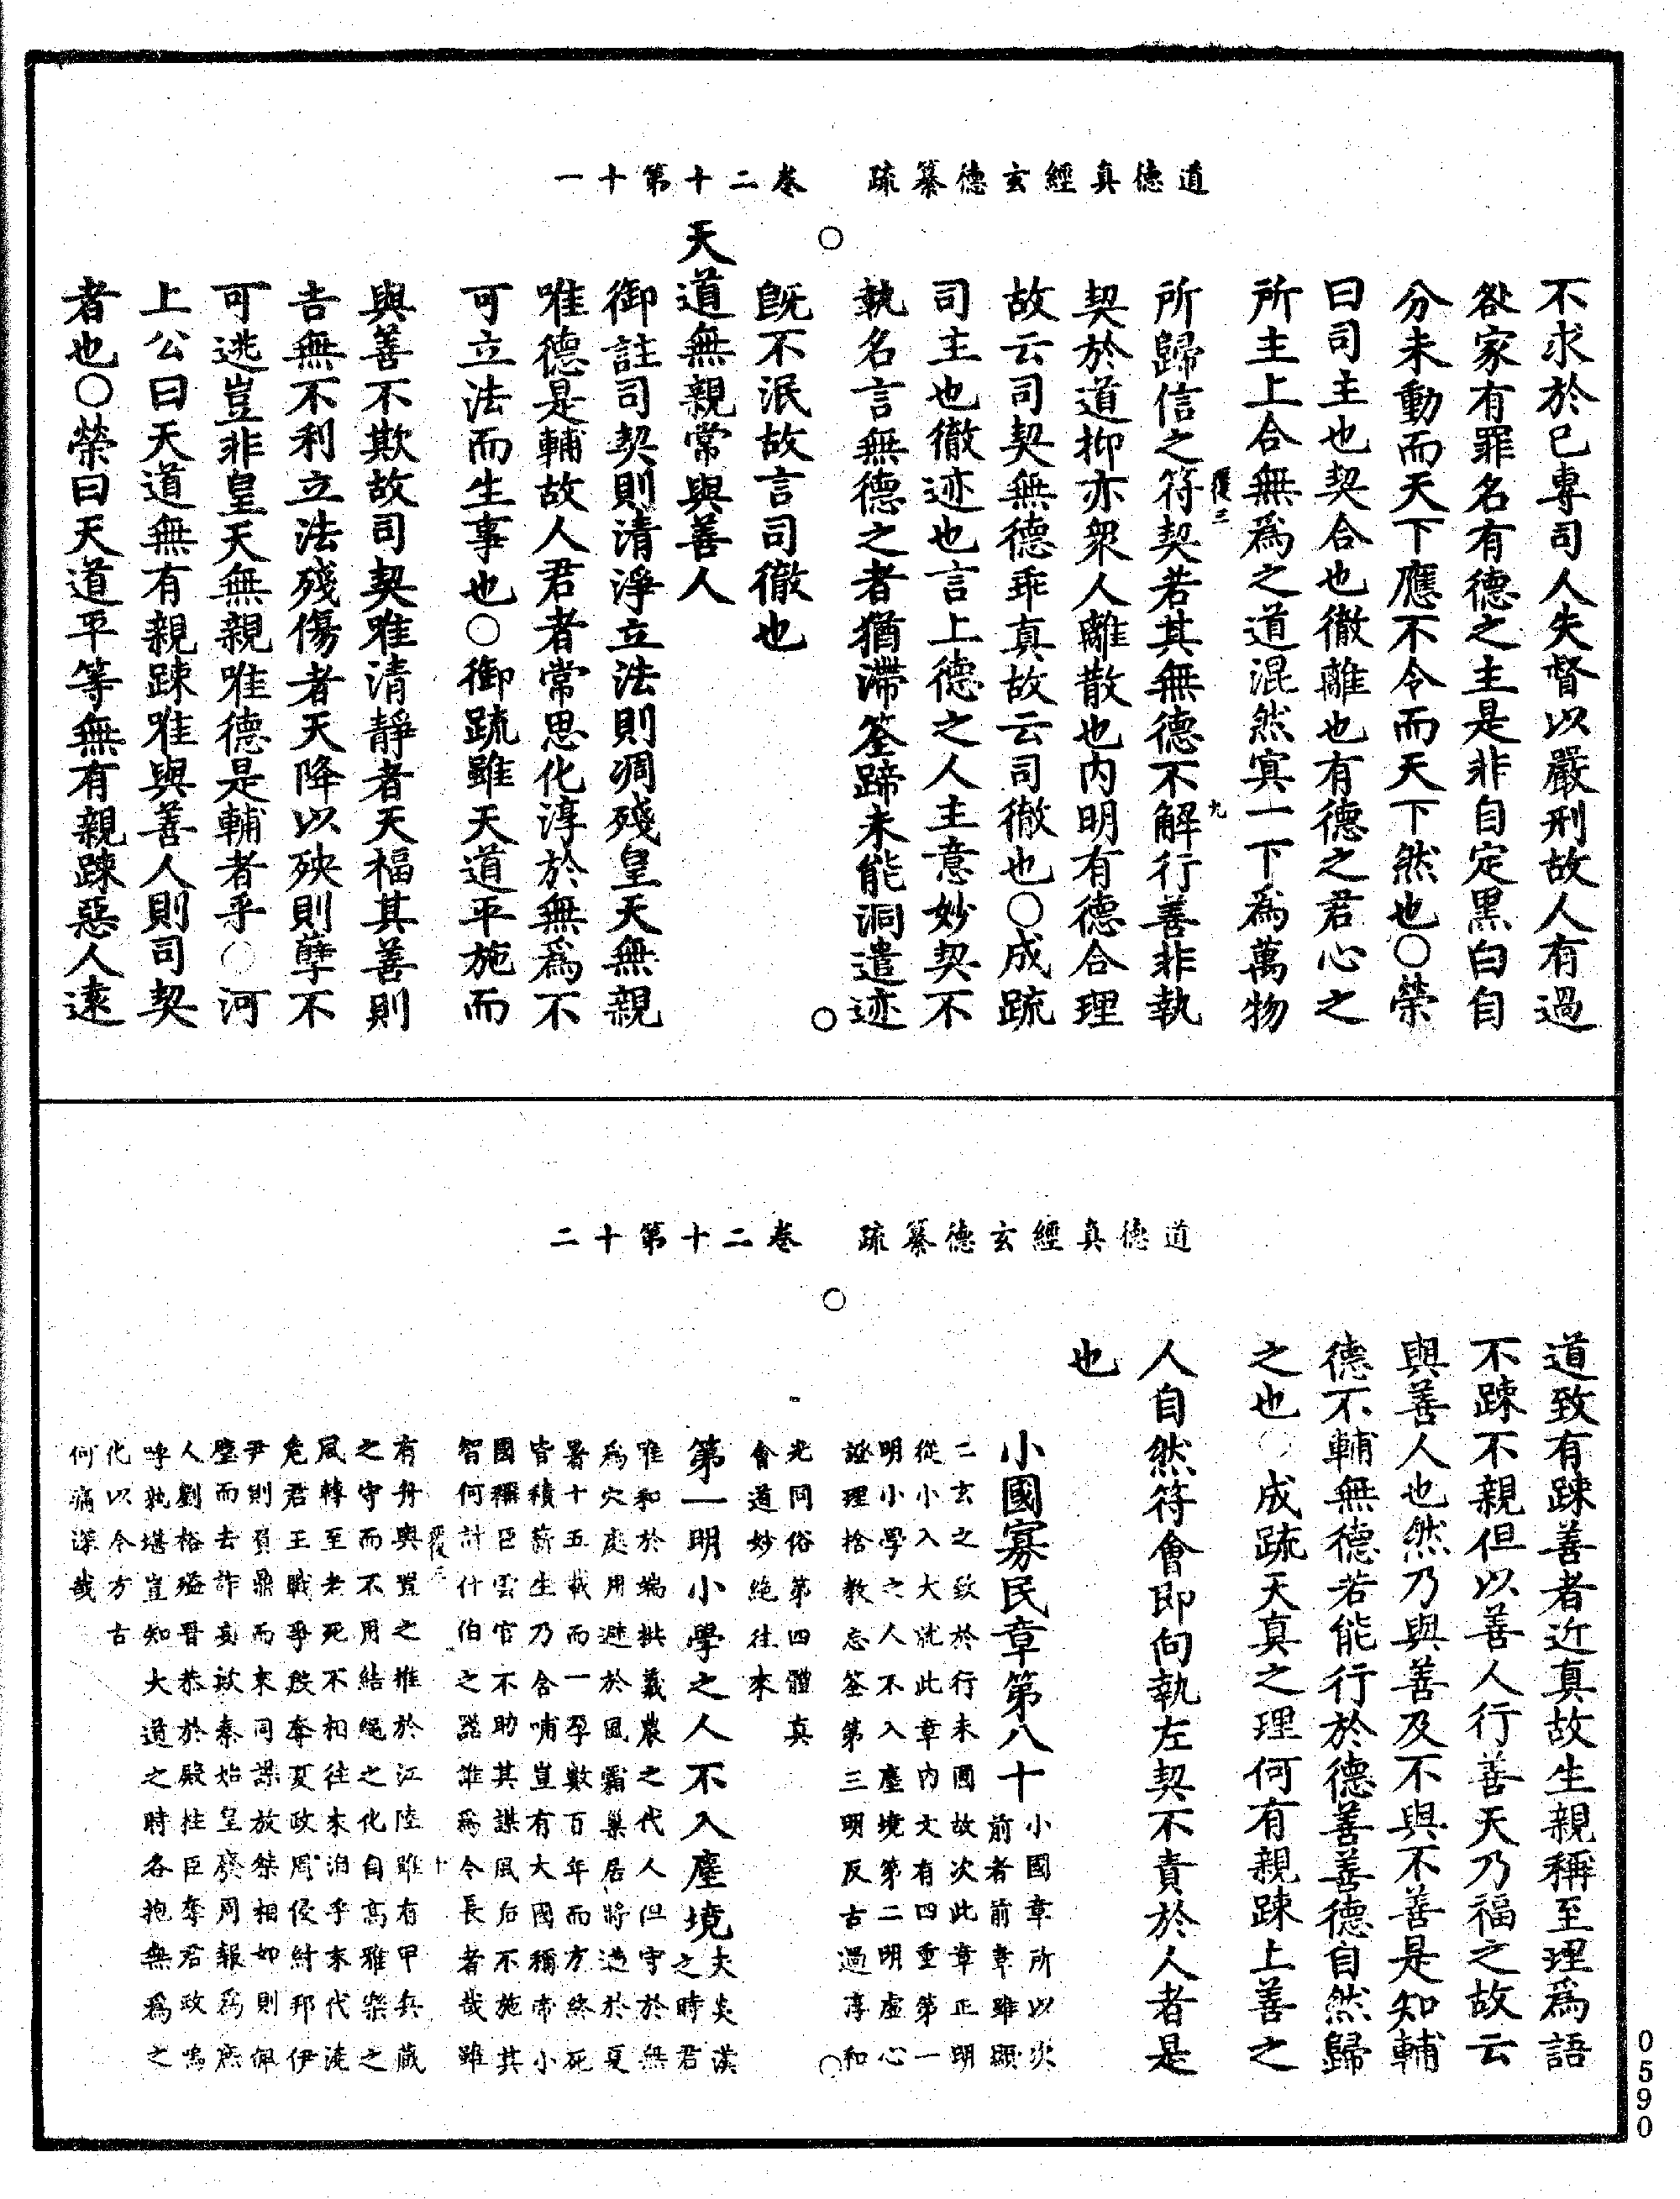 道德真經玄德纂疏　卷二十第十一
不求於已專司人失督以嚴刑故人有過
㕁家有罪名有德之主是非自定黑白自
分未動而天下應不令而天下然也○榮
曰司主也契合也徹離也有德之君心之
所主上合無爲之道混然寘一下爲萬物
所歸信之符契若其無德不解行善非執
契於道抑亦衆人離散也内明有德合理
故云司契無德乖真故云司徹也○成疏
司主也徹迹也言上德之人主意妙契不
執名言無德之者猶滯筌蹄未能洞遣迹
旣不泯故言司徹也
天道無親常與善人
御註司契則清淨立法則凋殘皇天無親
唯德是輔故人君者常思化淳於無爲不
可立法而生事也○御疏雖天道平施而
與善不欺故司契唯清靜者天福其善則
吉無不利立法殘傷者天降以殃則孽不
可逃豈非皇天無親唯德是輔者乎○河
上公曰天道無有親踈唯與善人則司契
者也○榮曰天道平等無有親踈惡人遠
道德真經玄德纂疏　卷二十第十二
道致有踈善者近真故生親稱至理爲語
不踈不親但以善人行善天乃福之故云
與善人也然乃與善及不與不善是知輔
德不輔無德若能行於德善善德自然歸
之也○成疏天真之理何有親踈上善之
人自然符會即向執左契不責於人者是
也
小國寡民章第八十
小國章所以次
前者前章雖顯
二玄之致於行未圓故次此章正明
從小入大就此章内文有四重第一
明小學之人不入塵境第二明虛心
證理捨教忘筌第三明反古過淳和
光同俗第四體真
會道妙絶往來
第一明小學之人不入塵境
夫炎漢
之時君
唯和於端拱羲農之代人但守於無
爲穴處用避於風霜巢居將過於夏
暑十五載而一孕數百年而方終死
皆積薪生乃含哺豈有大國稱帝小
國稱臣雲官不助其謀風后不施其
智何計什伯之器誰爲令長者哉雖
有舟輿置之推於江陸雖有甲兵藏
之守而不用結繩之化自高雅樂之
風轉至老死不相往來洎乎末代澆
危君王戰爭殷奪夏政周侵紂邦伊
尹則負鼎而來同謀放桀相如則佩
壁而去詐真欲秦始皇廢周報爲庶
人劉裕殛晋恭於殿柱臣奪君政嗚
呼孰堪豈知大道之時各抱無爲之
化以今方古
何痛深哉
0590